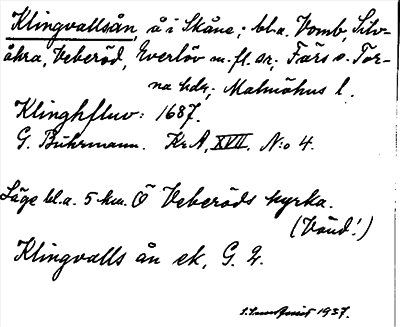 Klingvallsån, å i Skåne; bl.a. Vomb, Silv-
åkra, Veberöd, Everlöv m. fl. sr; Färs o. Tor-
na hdr; Malmöhus l.
Klinghfluv: 1687.
G. Buhrmann. Kr.A, XVII, N:o 4.
Läge bl.a. 5 km. Ö Veberöds kyrka.
(Vänd!)
Klingvalls ån ek, G. 2.
1937.